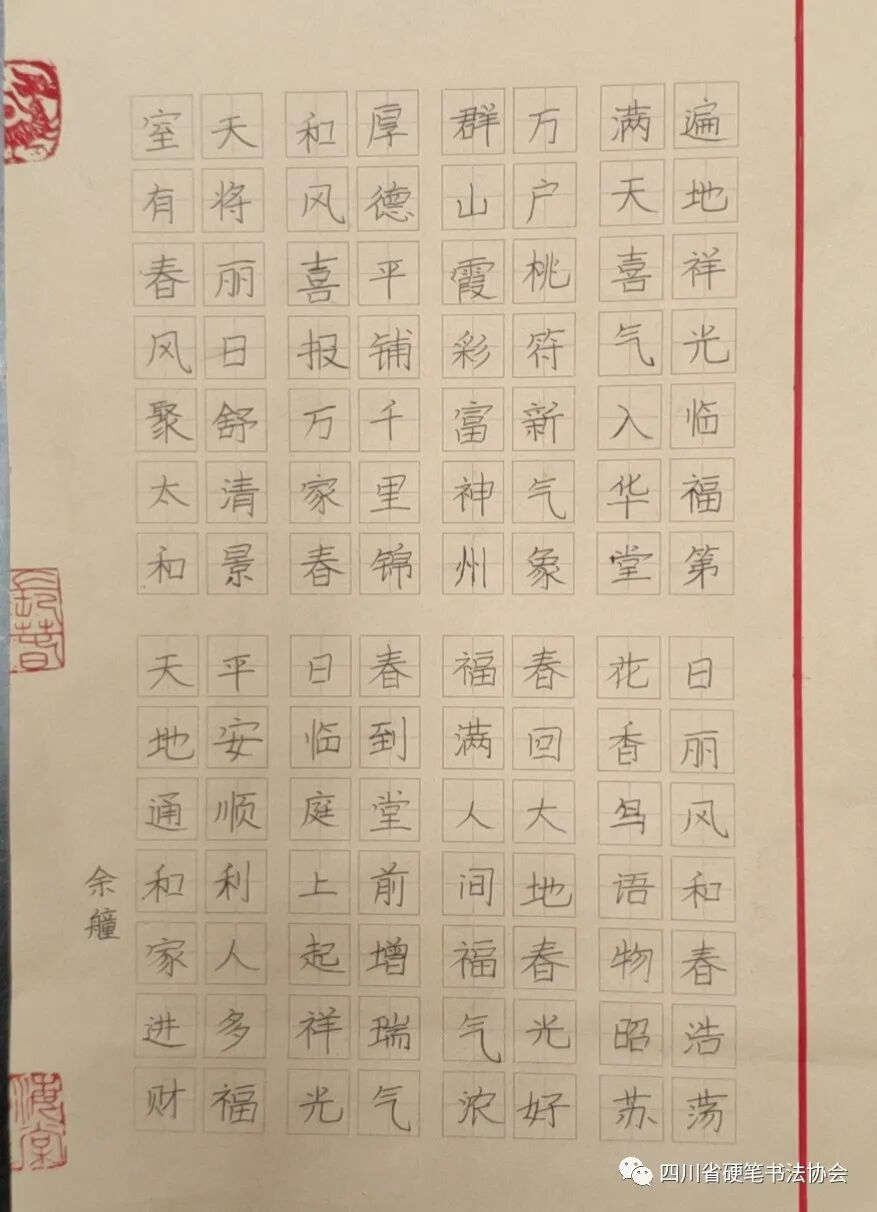 遍地祥光临福第
满天喜气入华堂
万户桃符新气象
群山霞彩富神州
厚德平铺千里锦
和风喜报万家春
天将丽日舒清景
室有春风聚太和
日丽风和春浩荡
花香鸟语物昭苏
春回大地春光好
福满人间福气浓
春到堂前增瑞气
日临庭上起祥光
平安顺利人多福
天地通和家进财
余艟
四川省硬笔书法协会